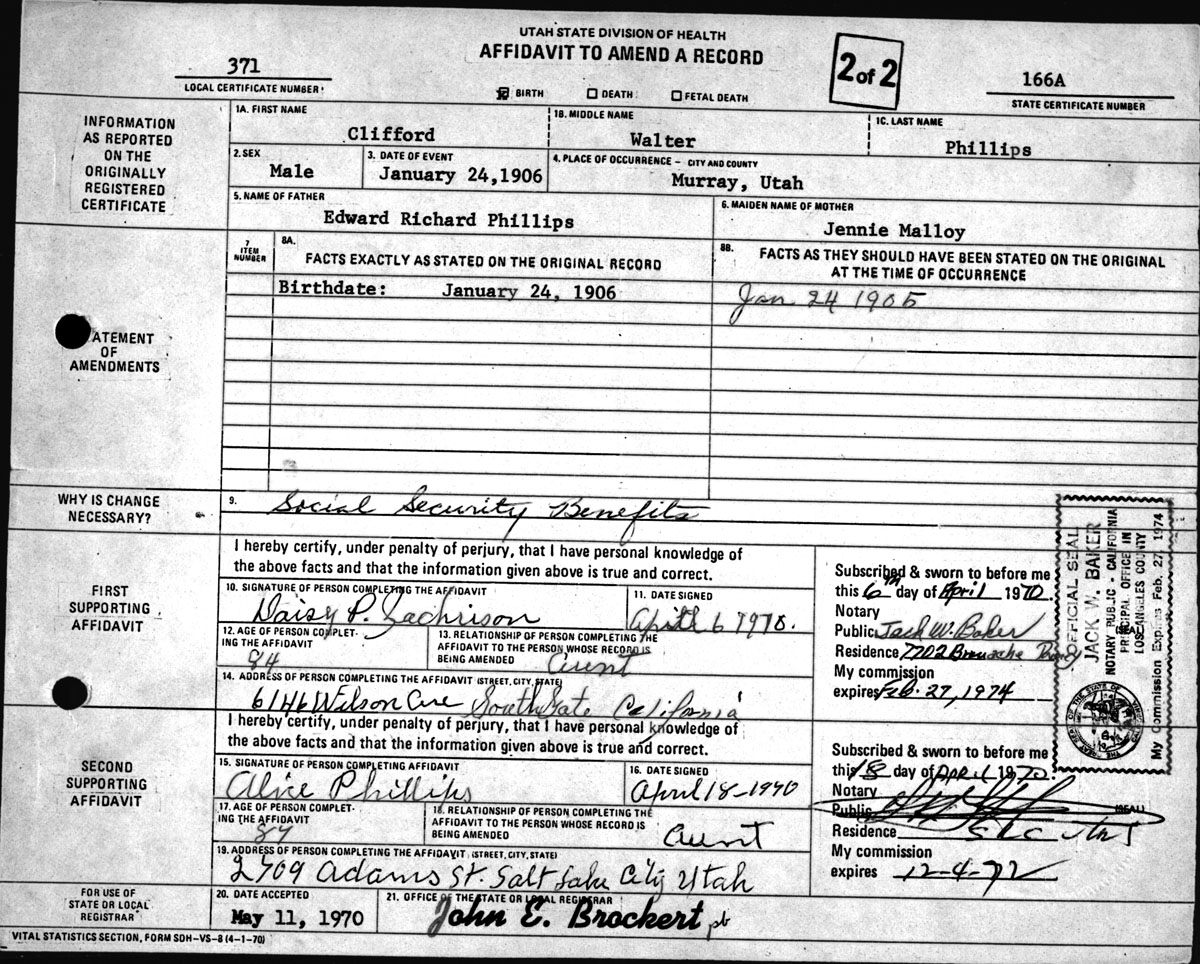 UTAH STATE DIVISION OF HEALTH
AFFIDAVIT TO AMEND A RECORD
2 of 2
371
LOCAL CERTIFICATE NUMBER
166A
STATE CERTIFICATE NUMBER
BIRTH DEATH FETAL DEATH
INFORMATION
AS REPORTED
ON THE
ORIGINALLY
REGISTERED
CERTIFICATE
1A. FIRST NAME
Clifford
1B. MIDDLE NAME
Walter
1C. LAST NAME
Phillips
2. SEX
Male
3. DATE OF EVENT
January 24,1906
4. PLACE OF OCCURRENCE - CITY AND COUNTY
Murray, Utah
5. NAME OF FATHER
Edward Richard Phillips
6. MAIDEN NAME OF MOTHER
Jennie Malloy
7
ITEM
NUMBER
8A.
FACTS EXACTLY AS STATED ON THE ORIGINAL RECORD
8B.
FACTS AS THEY SHOULD HAVE BEEN STATED ON THE ORIGINAL
AT THE TIME OF OCCURRENCE
Birthdate: January 24, 1906
Jan 24 1905
ATEMENT
OF
AMENDMENTS
WHY IS CHANGE
NECESSARY?
9.
Social Security Benefits
FIRST
SUPPORTING
AFFIDAVIT
I hereby certify, under penalty of perjury, that I have personal knowledge of
the above facts and that the information given above is true and correct.
10. SIGNATURE OF PERSON COMPLETING THE AFFIDAVIT
Daisy P. Zachrison
11. DATE SIGNED
6 1970.
12. AGE OF PERSON COMPLET-
ING THE AFFIDAVIT
84
13. RELATIONSHIP OF PERSON COMPLETING THE
AFFIDAVIT TO THE PERSON WHOSE RECORD IS
BEING AMENDED
Aunt
14. ADDRESS OF PERSON COMPLETING THE AFFIDAVIT (STREET, CITY, STATE)
6146 Wilson Ave South Gate California
Subscribed & sworn to before me
this 6th day of April 1970.
Notary
Public Jack W. Baker
Residence 7702
My commission
expires Feb. 27, 1974
OFFICIAL SEAL
JACK W. BAKER
NOTARY PUBLIC - CALIFORNIA
PRINCIPAL OFFICE IN
LOS ANGELES COUNTY
My Commission Expires Feb. 27, 1974
(SEAL)
SECOND
SUPPORTING
AFFIDAVIT
I hereby certify, under penalty of perjury, that I have personal knowledge of
the above facts and that the information given above is true and correct.
15. SIGNATURE OF PERSON COMPLETING AFFIDAVIT
Alice Phillips
16. DATE SIGNED
April 18-1970
17. AGE OF PERSON COMPLET-
ING THE AFFIDAVIT
18. RELATIONSHIP OF PERSON COMPLETING THE
AFFIDAVIT TO THE PERSON WHOSE RECORD IS
BEING AMENDED
Aunt
19. ADDRESS OF PERSON COMPLETING THE AFFIDAVIT (STREET, CITY, STATE)
2709 Adams St. Salt Lake City Utah
Subscribed & sworn to before me
this 18 day of April 1970.
Notary
Public
(SEAL)
Residence SLC
My commission
expires 12-4-72
FOR USE OF
STATE OR LOCAL
REGISTRAR
20. DATE ACCEPTED
May 11, 1970
21. OFFICE OF THE STATE OR LOCAL REGISTRAR
John E. Brockert pb
VITAL STATISTICS SECTION, FORM SDH-VS-8 (4-1-70)